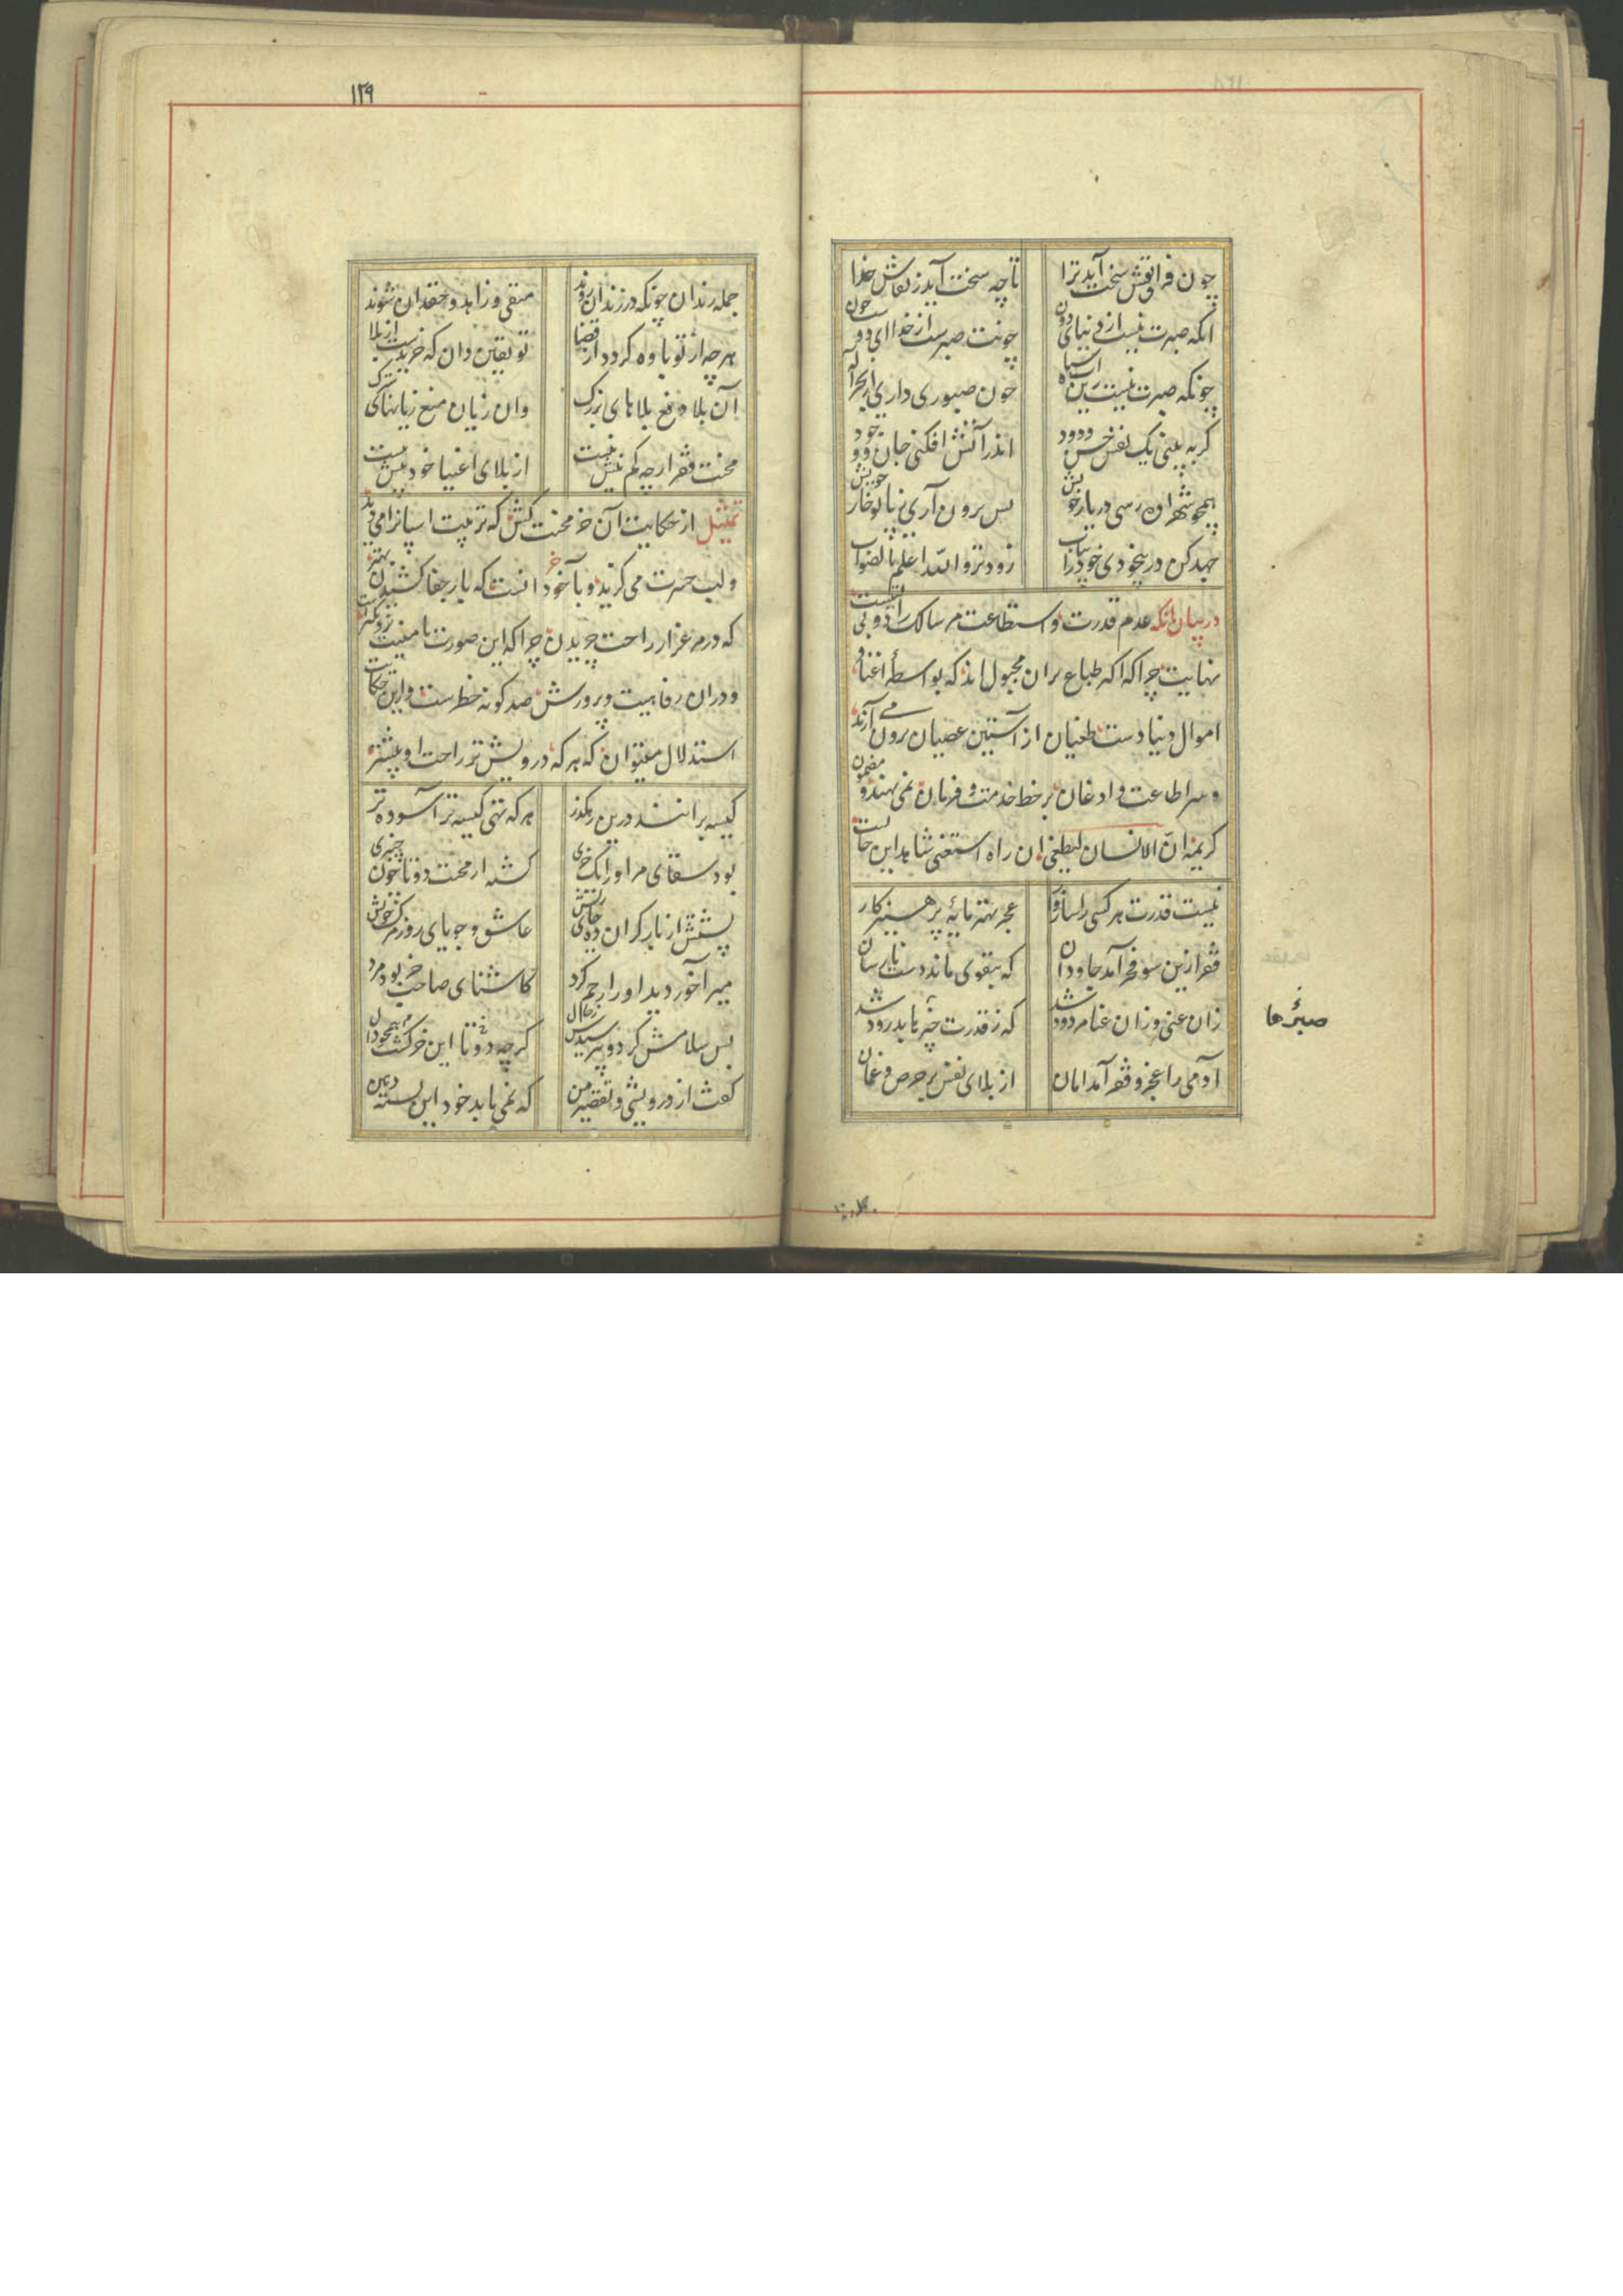 چون فراقش سخت آید ترا
تا چه سخت آید ز نقاش خدا
انکه صبرت نیست از دنیای دون
چونت صبرست از خدا ای دوست چون
چونکه صبرت نیست زین
چون صبوری داری از
گر به بینی یک نفس حسن ودود
اندر آتش افکنی جان و وجود
همچو شهزاده رسی در یار خویش
پس برون آری ز پا تو خار خویش
جهد کن در بیخودی خود را بیاب
زودتر والله اعلم بالصواب
در بیان آنکه عدم قدرت و استطاعت مر سالک را دولتیست بی
نهایت چرا که اکه طباع بران مجبول اند که بواسطهٔ اغنا و
اموال دنیا دست طغیان از آستین عصیان برون می آرند
و سر اطاعت و اذعان بر خط خدمت و فرمان نمی نهند و مضمون
کریمه انّ الانسان لیطغی ان راه استغنی شاهد این حالت
نیست قدرت هر کسی را سازوار
عجز بهتر مایهٔ پرهیزکار
فقر ازین سو فخر آمد جاودان
که بتقوی ماند دست نارسان
زان غنی و زان غنا مردود شد
که ز قدرت صبرها بدرود شد
آدمی را عجز و فقر آمد امان
از بلای نفس پر حرص و غمان
صبرها
۱۲۹
جمله رندان چونکه در زندان روند
متقی و زاهد و حقدان شوند
هر چه از تو یاوه گردد از قضا
تو یقین دان که خریدت از بلا
آن بلا دفع بلاهای بزرگ
وان زیان منع زیانهای
محنت فقر ارچه کم نیش نیست
از بلای اغنیا خود بیش نیست
تمثیل از حکایت آن خر محنت کش که تربیت اسپانرا می دید
و لب حسرت می گزید و بآخر دانست که بار جفا کشیدن بهتر
که در مرغزار راحت چریدن چرا که این صورت بامنیت نزدیکتر
و دران رفاهیت و پرورش صد گونه خطرست و این حکایت
استدلال میتوان که هر که درویش تر راحت او بیشتر
کیسه برانند درین رهگذر
هر که تهی کیسه تر آسوده تر
بود سقای مر اورا یک خری
گشته از محنت دو تا چون چنبری
پشتش از بار گران ده جای ریش
عاشق و جویای روز مرگ خویش
میر آخور دید او را رحم کرد
کاشنای صاحب خر بود مرد
پس سلامش کرد و پرسیدش ز حال
کز چه دو تا این خر گشت همچو دال
گفت از درویشی و تقصیر من
که نمی یابد خود این بسته دهن